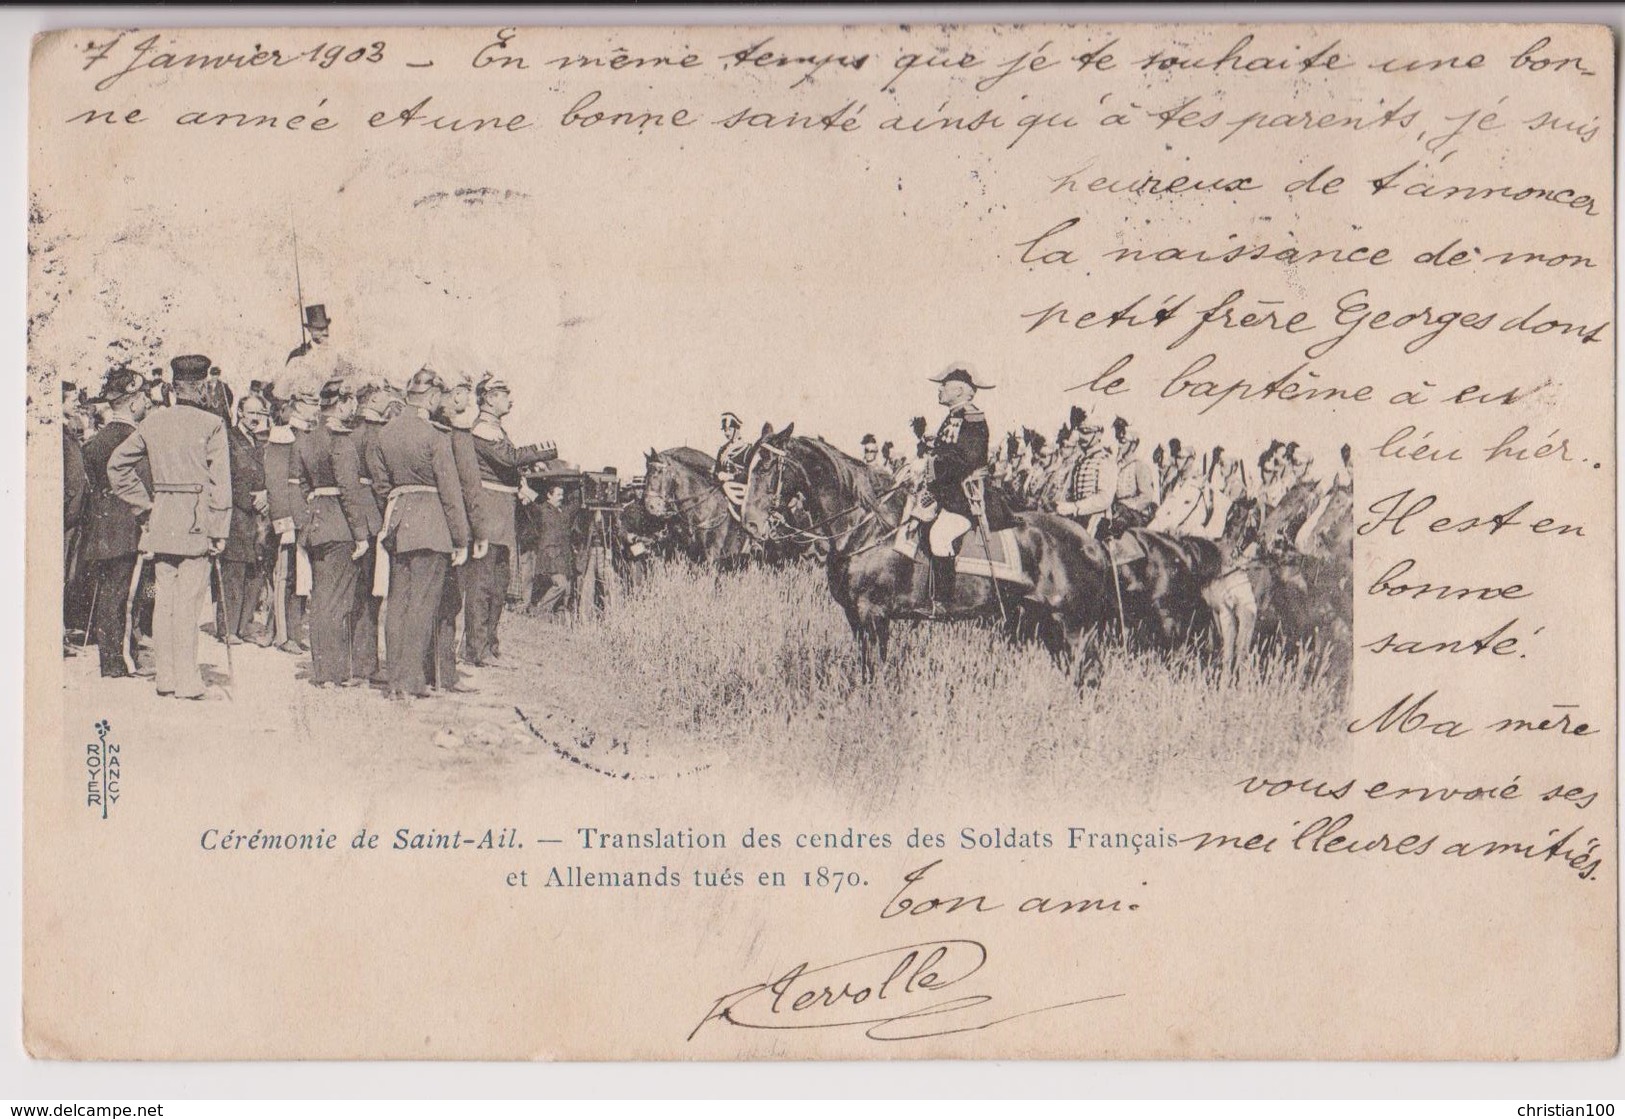 7 Janvier 1903 - En même temps que je te souhaite une bon-
ne année et une bonne santé ainsi qu'à tes parents, je suis
heureux de t'annoncer
la naissance de mon
petit frère Georges dont
le baptême à eu
lieu hier..
Il est en
bonne
santé.
Ma mère
vous envoie ses
meilleures amitiés.
Ton ami.
ROYER
NANCY
Cérémonie de Saint-Ail. — Translation des cendres des Soldats Français
et Allemands tués en 1870.
www.delcampe.net
christian100